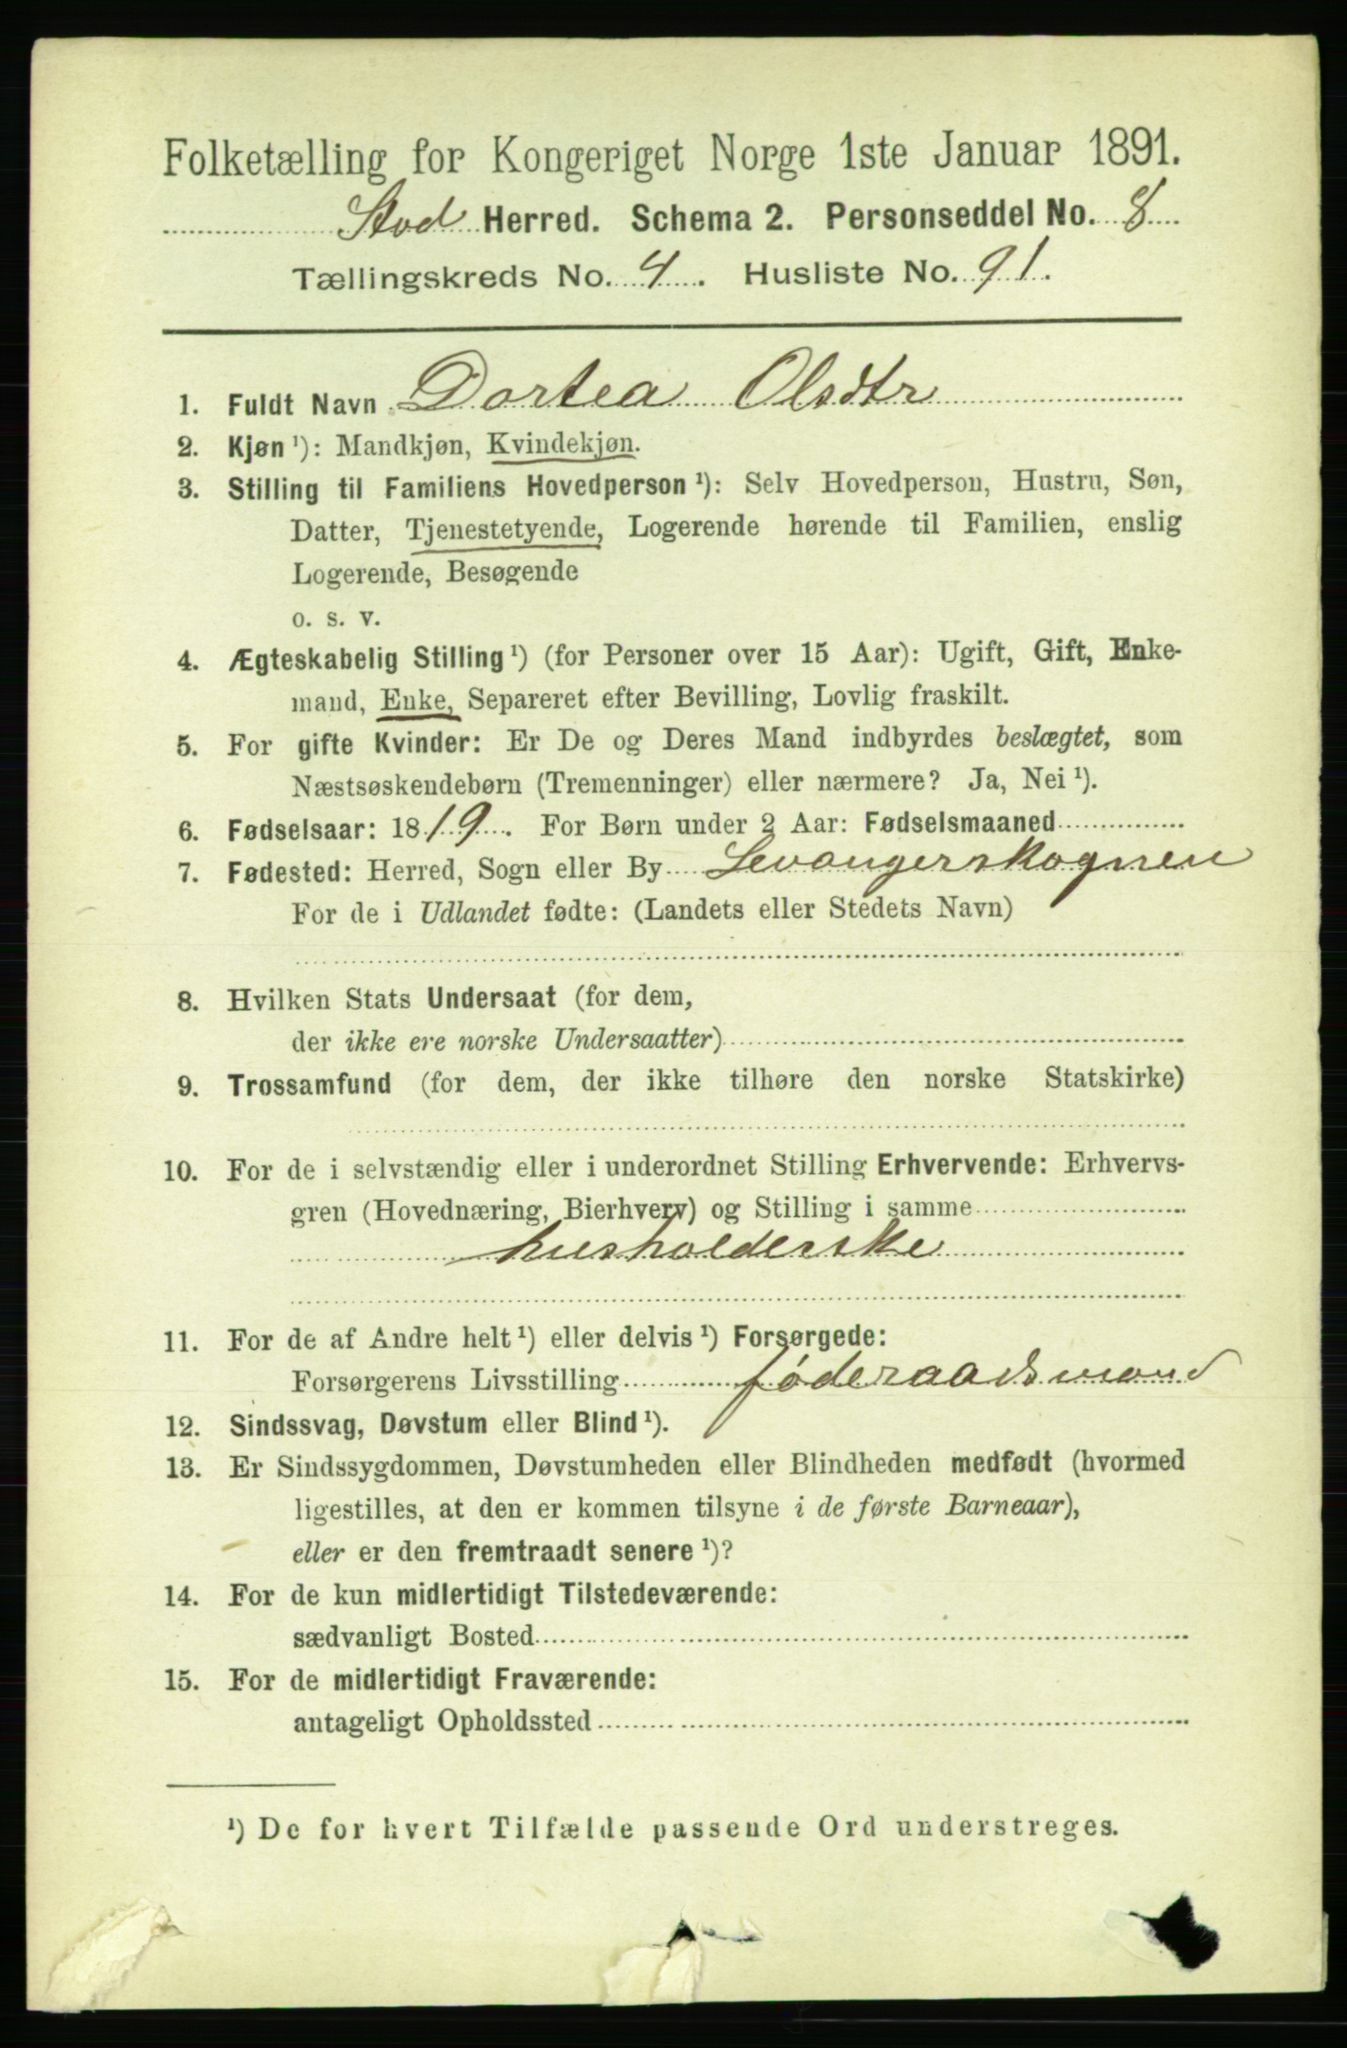 Folketælling for Kongeriget Norge 1ste Januar 1891.
Stod Herred. Schema 2. Personseddel No. 8
Tællingskreds No. 4. Husliste No. 91.
1. Fuldt Navn Dortea Olsdtr
2. Kjøn ¹): Mandkjøn, Kvindekjøn.
3. Stilling til Familiens Hovedperson ¹): Selv Hovedperson, Hustru, Søn,
Datter, Tjenestetyende, Logerende hørende til Familien, enslig
Logerende, Besøgende
o. s. v.
4. Ægteskabelig Stilling ¹) (for Personer over 15 Aar): Ugift, Gift, Enke-
mand, Enke, Separeret efter Bevilling, Lovlig fraskilt.
5. For gifte Kvinder: Er De og Deres Mand indbyrdes beslægtet, som
Næstsøskendebørn (Tremenninger) eller nærmere? Ja, Nei ¹).
6. Fødselsaar: 1819. For Børn under 2 Aar: Fødselsmaaned
7. Fødested: Herred, Sogn eller By Levangerskognen
For de i Udlandet fødte: (Landets eller Stedets Navn)
8. Hvilken Stats Undersaat (for dem,
der ikke ere norske Undersaatter)
9. Trossamfund (for dem, der ikke tilhøre den norske Statskirke)
10. For de i selvstændig eller i underordnet Stilling Erhvervende: Erhvervs-
gren (Hovednæring, Bierhverv) og Stilling i samme
husholderske
11. For de af Andre helt ¹) eller delvis ¹) Forsørgede:
Forsørgerens Livsstilling føderaadsmand
12. Sindssvag, Døvstum eller Blind ¹).
13. Er Sindssygdommen, Døvstumheden eller Blindheden medfødt (hvormed
ligestilles, at den er kommen tilsyne i de første Barneaar),
eller er den fremtraadt senere ¹)?
14. For de kun midlertidigt Tilstedeværende:
sædvanligt Bosted
15. For de midlertidigt Fraværende:
antageligt Opholdssted
¹) De for hvert Tilfælde passende Ord understreges.